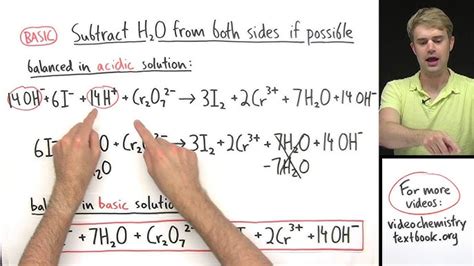 BASIC Subtract H₂O from both sides if possible
balanced in acidic solution:
14OH⁻+6I⁻+14H⁺+Cr₂O₇²⁻→3I₂+2Cr³⁺+7H₂O+14OH⁻
6I⁻ O+Cr₂O₇²⁻→3I₂+2Cr³⁺+7H₂O+14OH⁻
₂O -7H₂O
in basic solution
+7H₂O+Cr₂O₇²⁻ +2Cr³⁺+14OH⁻
For more
videos:
videochemistry
textbook.org